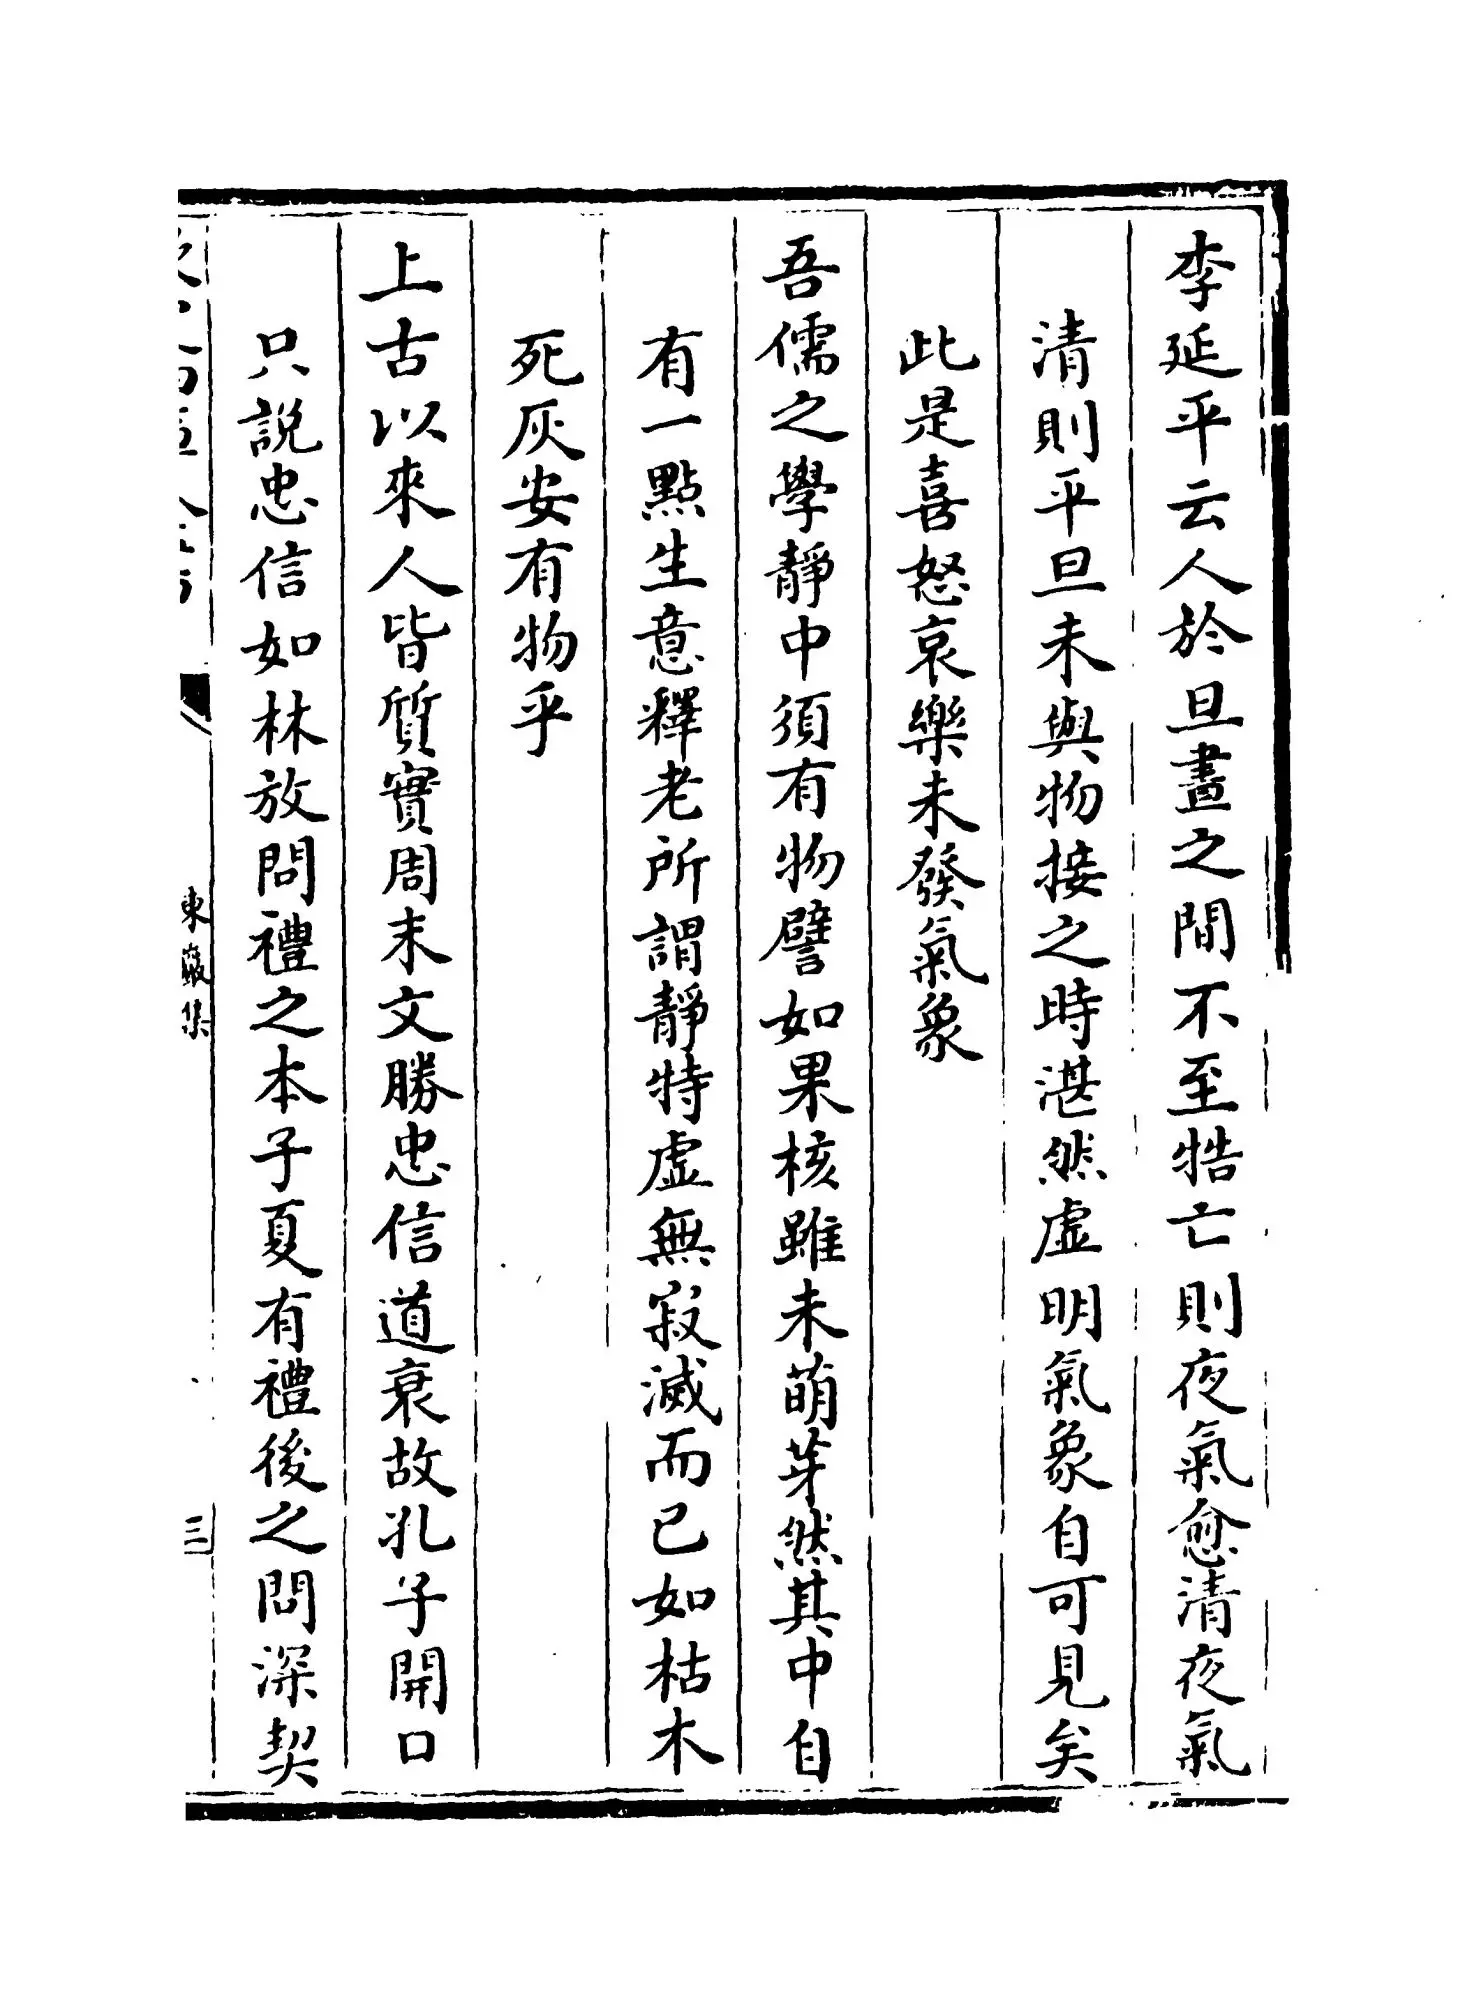 李延平云人於旦晝之間不至牿亡則夜氣愈清夜氣
清則平旦未與物接之時湛然虛明氣象自可見矣
此是喜怒哀樂未發氣象
吾儒之學靜中須有物譬如果核雖未萌芽然其中自
有一點生意釋老所謂靜特虛無寂滅而已如枯木
死灰安有物乎
上古以來人皆質實周末文勝忠信道衰故孔子開口
只說忠信如林放問禮之本子夏有禮後之問深契
東巖集
三